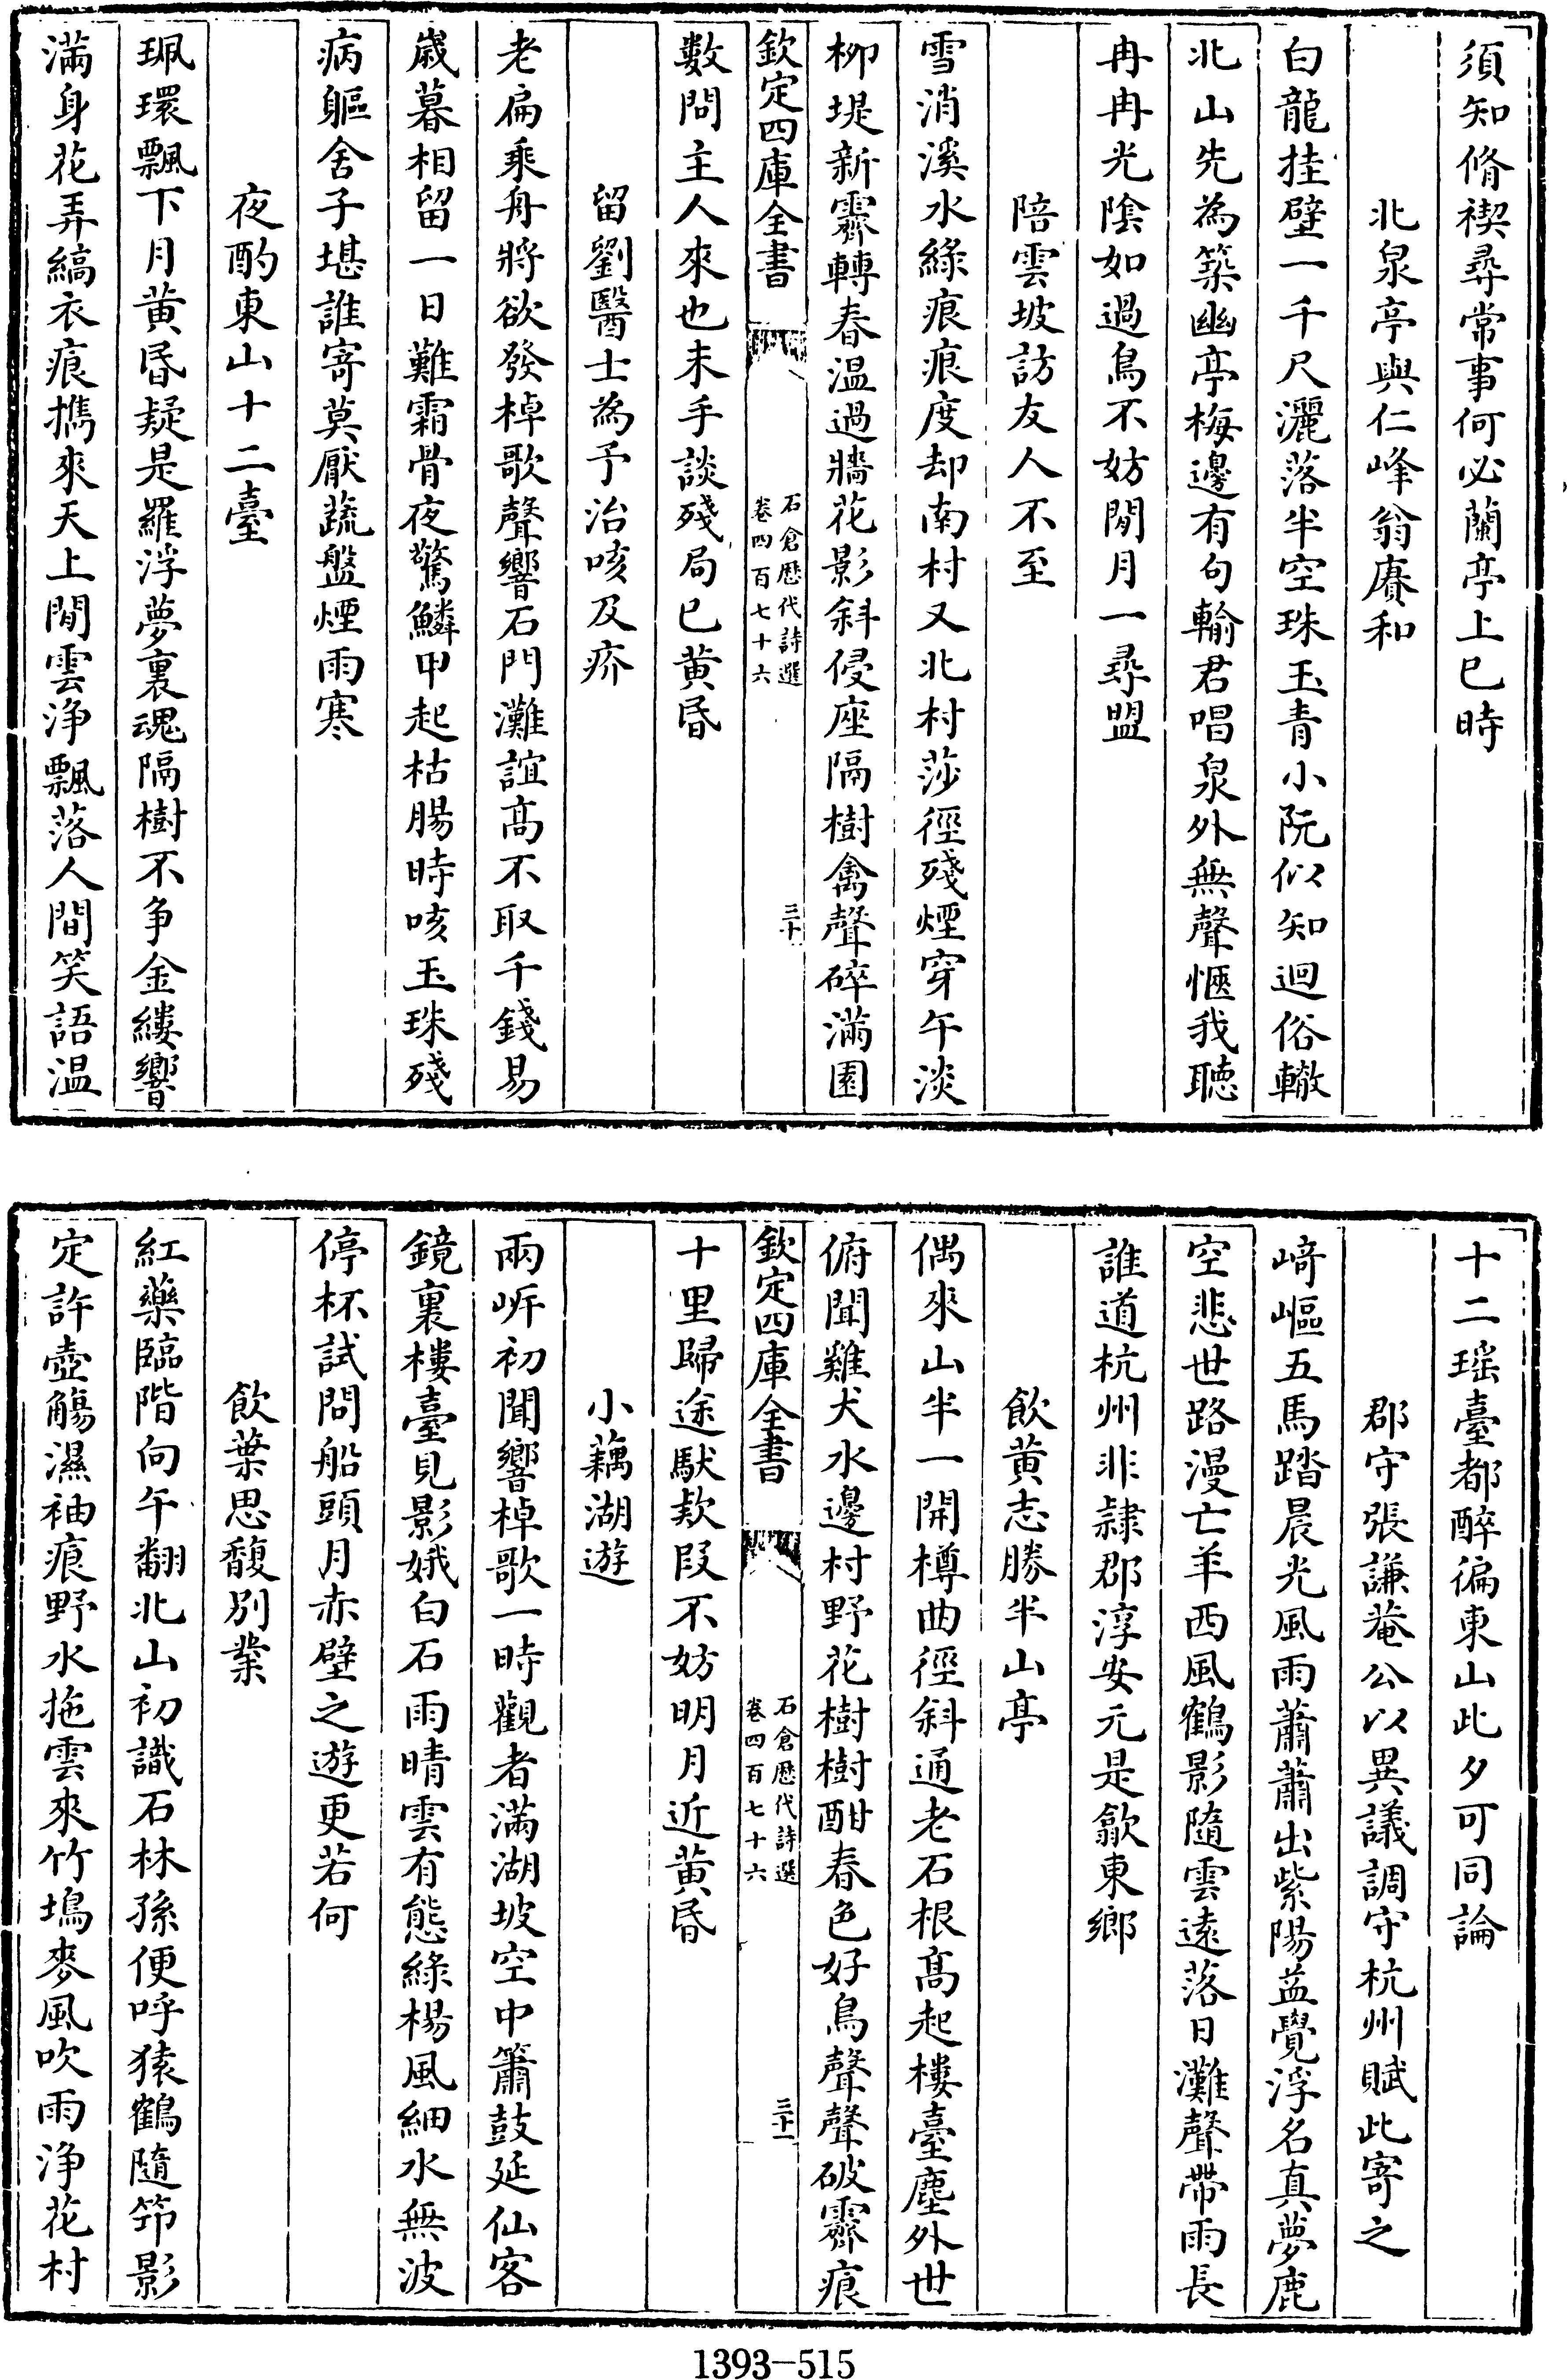 須知脩禊尋常事何必蘭亭上巳時
北泉亭與仁峰翁賡和
白龍挂壁一千尺灑落半空珠玉青小阮似知迴俗轍
北山先為築幽亭梅邊有句輸君唱泉外無聲愜我聽
冉冉光陰如過鳥不妨閒月一尋盟
陪雲坡訪友人不至
雪消溪水綠痕痕度却南村又北村莎徑殘煙穿午淡
柳堤新霽轉春温過牆花影斜侵座隔樹禽聲碎滿園
欽定四庫全書
石倉歷代詩選
卷四百七十六
三十
數問主人來也未手談殘局已黄昏
留劉醫士為予治咳及疥
老扁乘舟將欲發棹歌聲響石門灘誼高不取千錢易
歲暮相留一日難霜骨夜驚鱗甲起枯腸時咳玉珠殘
病軀舍子堪誰寄莫厭蔬盤煙雨寒
夜酌東山十二臺
珮環飄下月黄昏疑是羅浮夢裏魂隔樹不争金縷響
滿身花弄縞衣痕擕來天上閒雲浄飄落人間笑語温
十二瑶臺都醉徧東山此夕可同論
郡守張謙菴公以異議調守杭州賦此寄之
﨑嶇五馬踏晨光風雨蕭蕭出紫陽益覺浮名真夢鹿
空悲世路漫亡羊西風鶴影隨雲遠落日灘聲帶雨長
誰道杭州非隷郡淳安元是歙東鄉
飲黄志勝半山亭
偶來山半一開樽曲徑斜通老石根髙起樓臺塵外世
俯聞雞犬水邊村野花樹樹酣春色好鳥聲聲破霽痕
欽定四庫全書
石倉歷代詩選
卷四百七十六
三十一
十里歸途馱欵段不妨明月近黄昏
小藕湖遊
兩岍初聞響棹歌一時觀者滿湖坡空中簫鼓延仙客
鏡裏樓臺見影娥白石雨晴雲有態綠楊風細水無波
停杯試問船頭月赤壁之遊更若何
飲葉思馥別業
紅藥臨階向午翻北山初識石林孫便呼猿鶴隨笻影
定許壺觴濕袖痕野水拖雲來竹塢麥風吹雨浄花村
1393-515